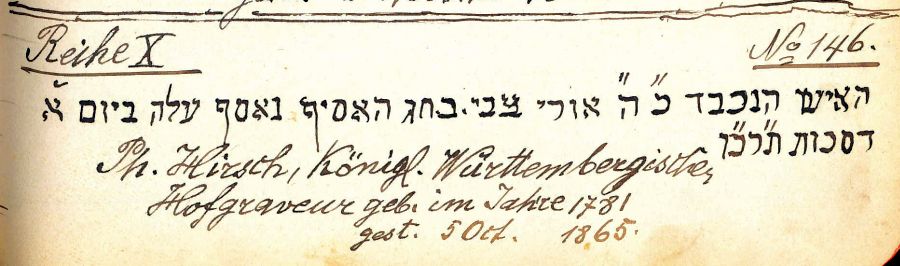 Reihe X No 146.
האיש הנכבד כ״ ה״ אורי צבי. בחג האסיף נאסף עלה ביום א׳
דסכות תרכ״ו
Ph. Hirsch, Königl. Württembergische,
Hofgraveur geb. im Jahre 1781
gest. 5 Oct. 1865.